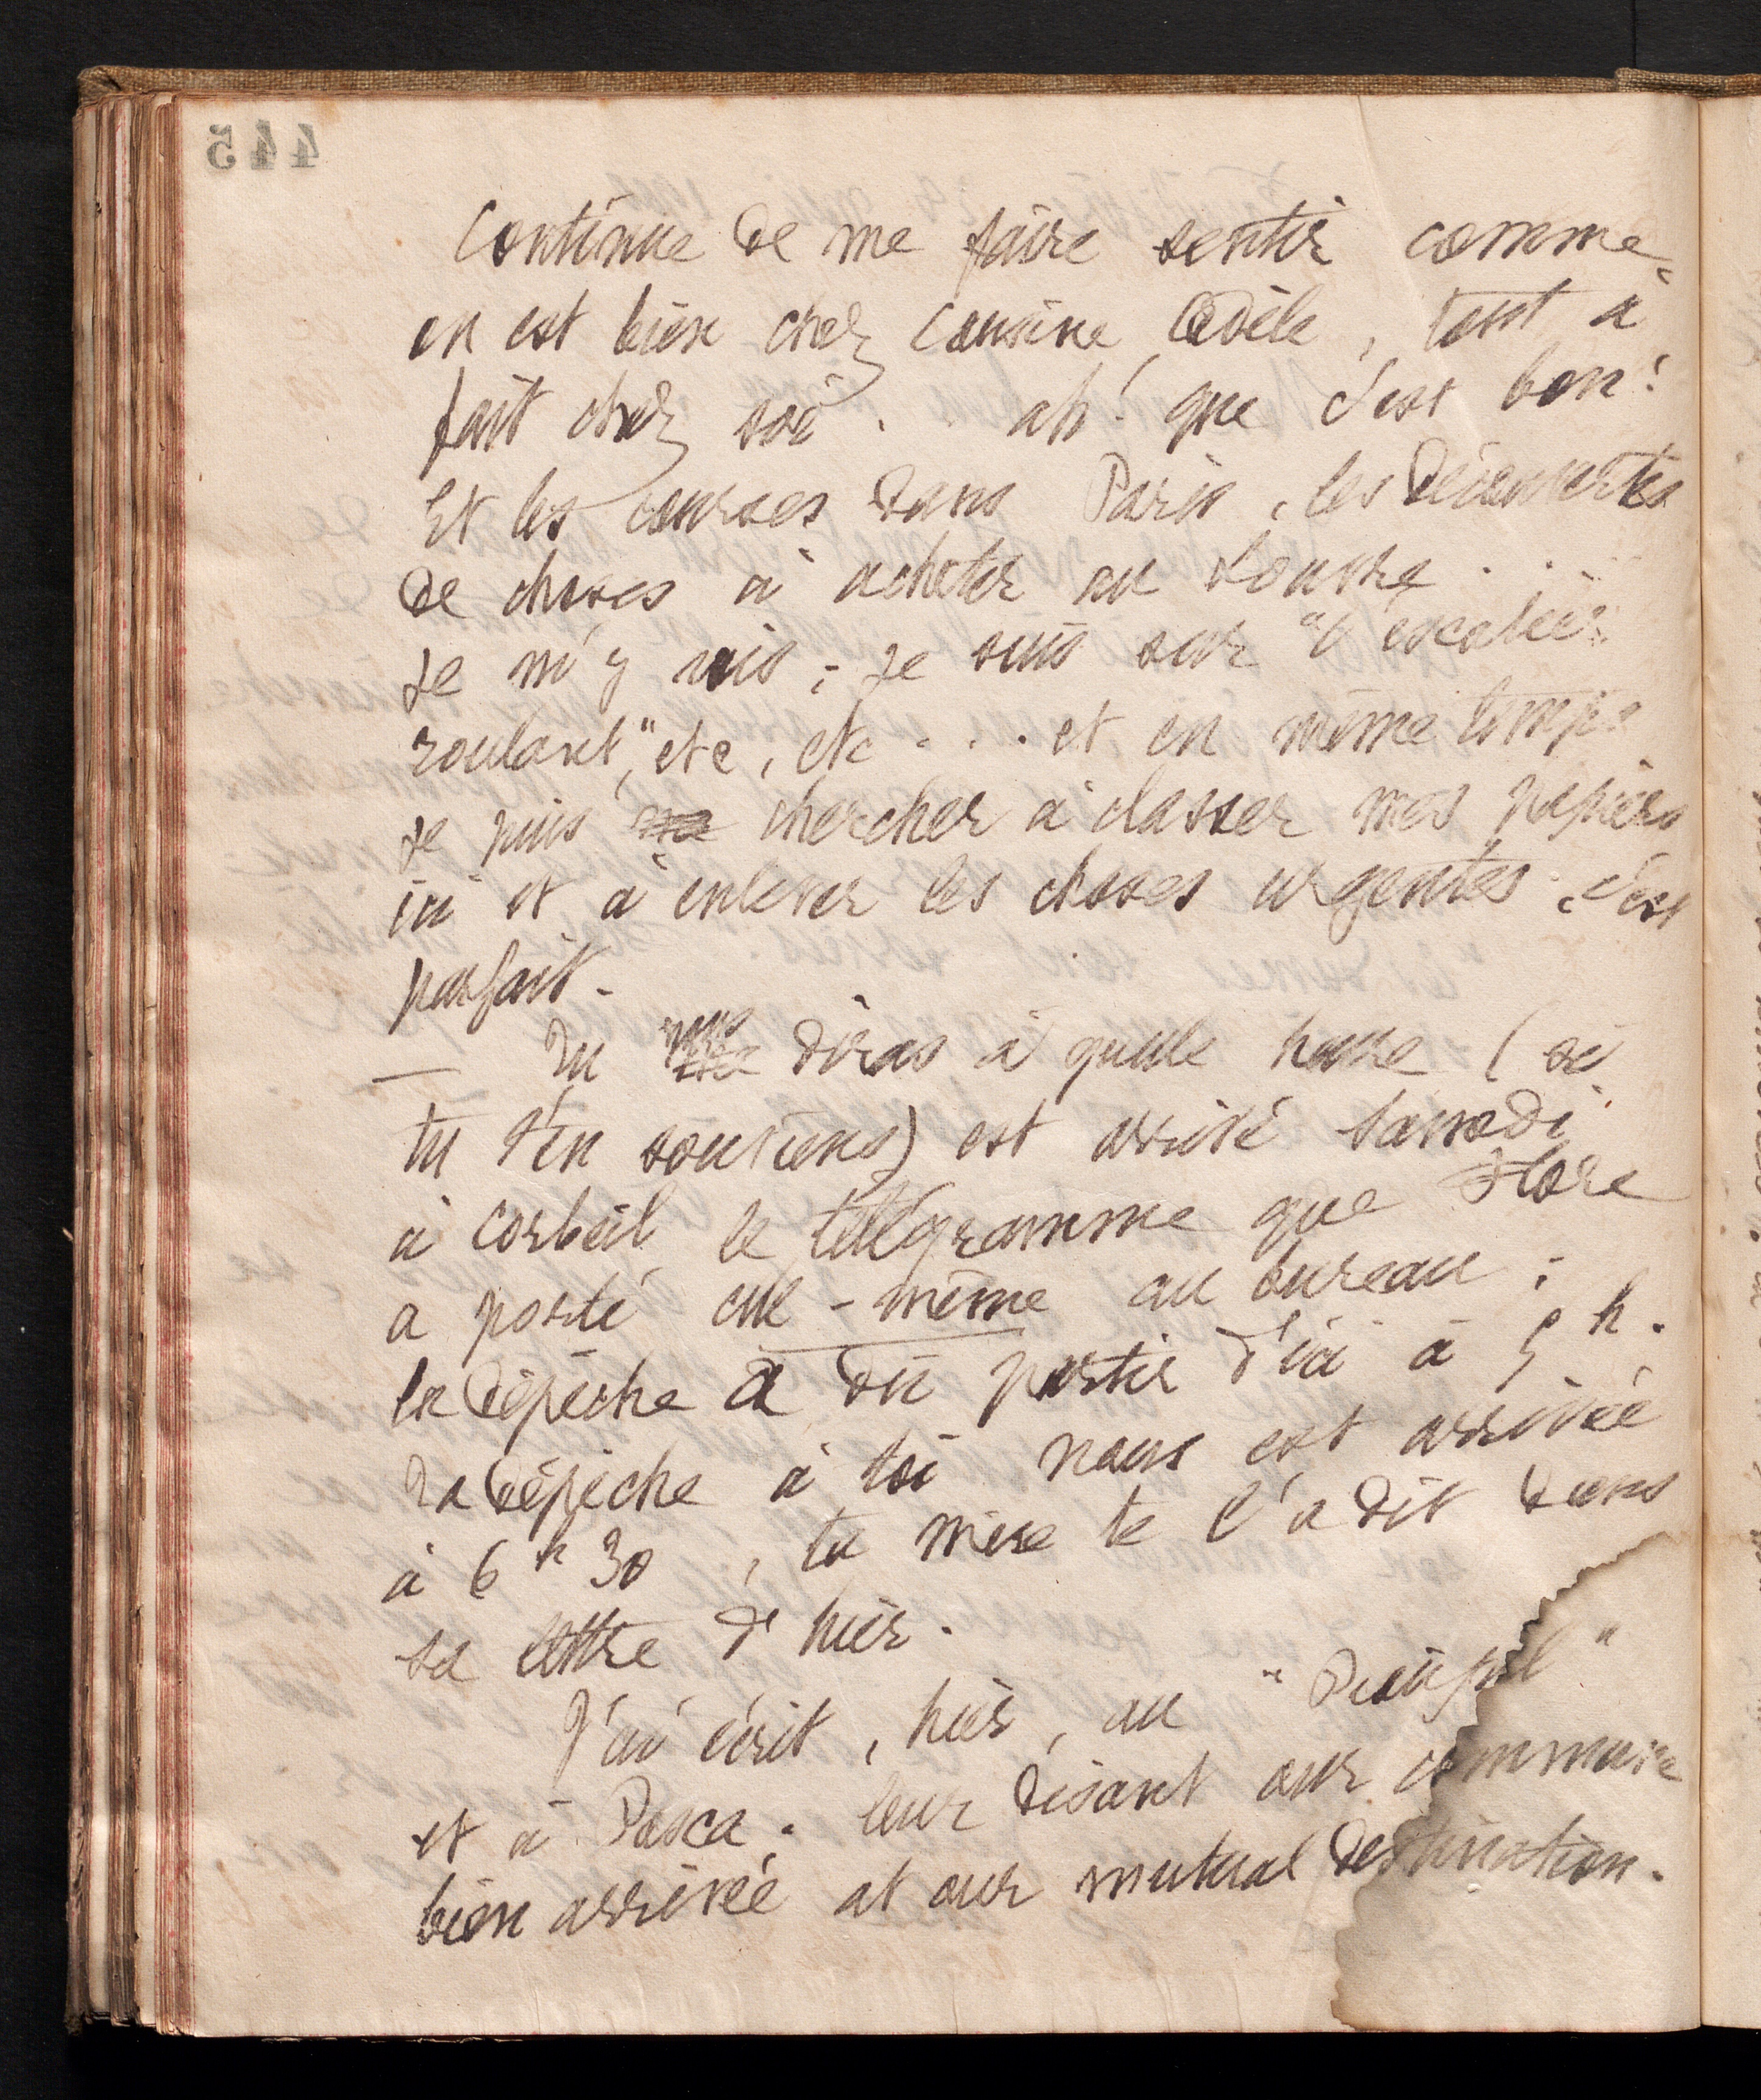 445
Continue de me faire sentir comme
on est bien chez cousine Adèle, tout à
fait chez soi. . ah! que c'est bon!
Et les courses dans Paris, les découvertes
de choses à acheter au Louvre . . .
Je m'y vois ; je suis sur "l'escalier
roulant", etc, etc . . . et en même temps
je puis chercher à classer mes papiers
ici et à enlever les choses urgentes. c'est
parfait.
— Tu nous diras à quelle heure (si
tu t'en souviens) est arrivé samedi
à Corbeil le télégramme que Flore
a porté elle-même au bureau ;
la dépêche a dû partir d'ici à 5 h.
Ta dépêche à toi nous est arrivée
à 6 h 30, ta mère te l'a dit dans
sa lettre d'hier.
J'ai écrit, hier, au "
et à Pasca. leur disant our commune
bien arrivée at our mutual destination.